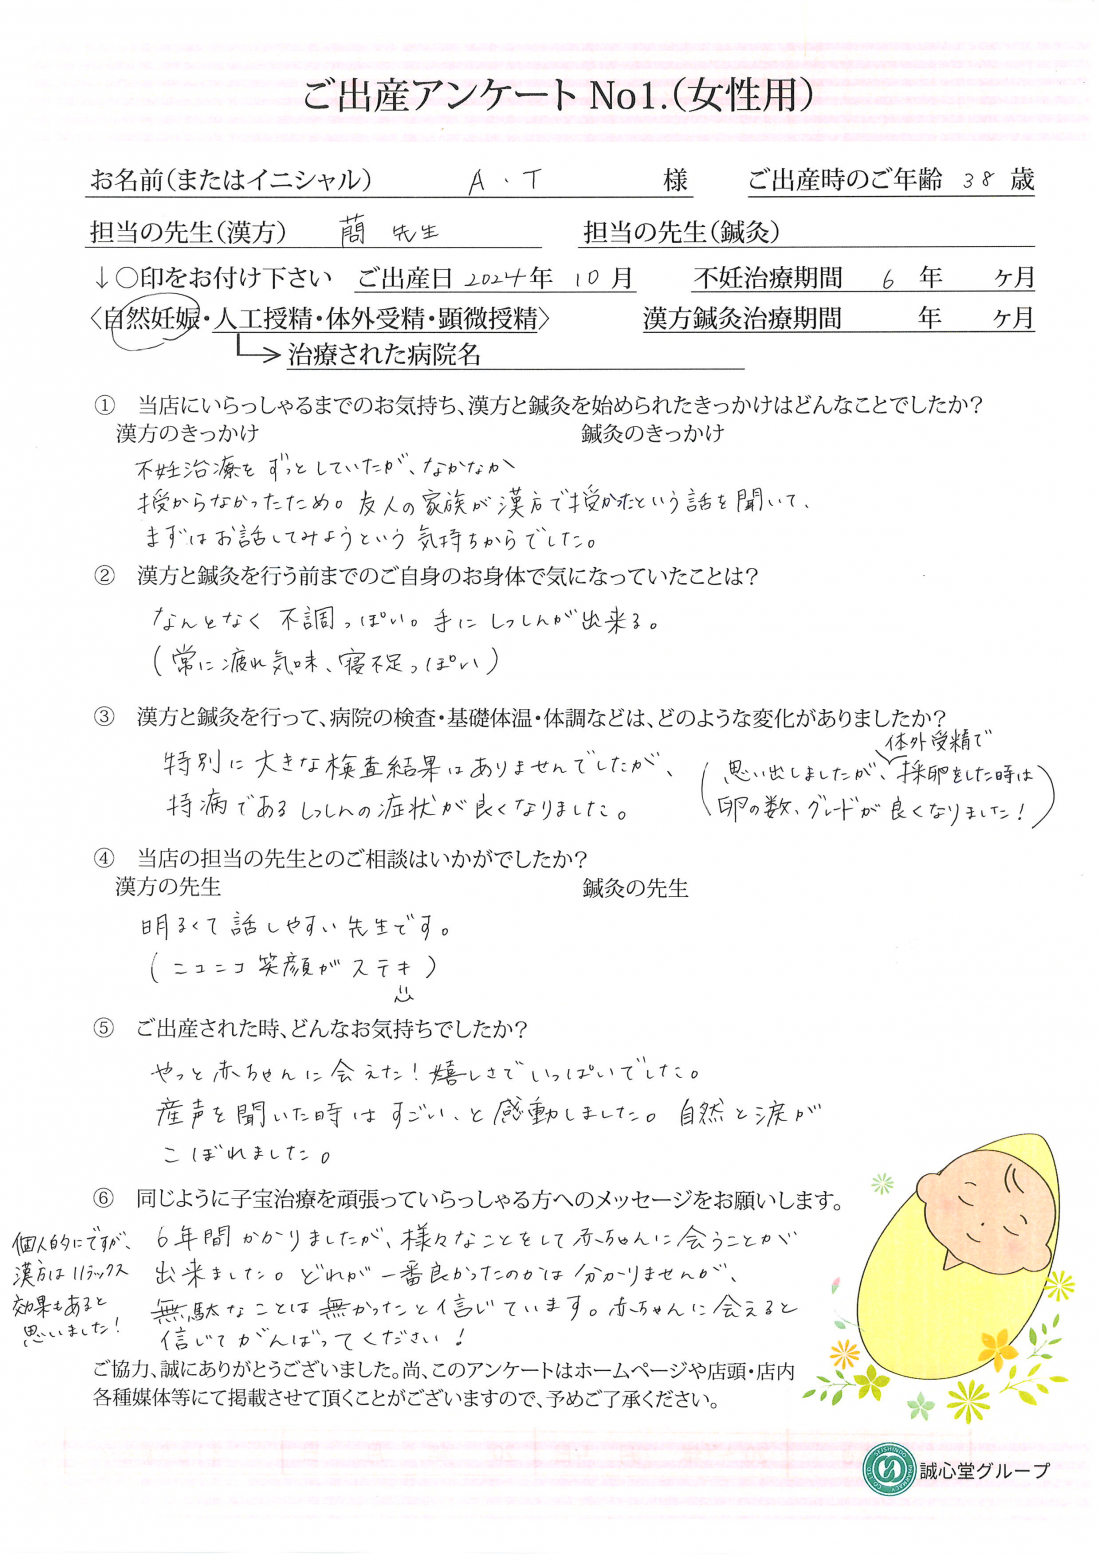 ご出産アンケート No1.(女性用)
お名前(またはイニシャル) A.T 様 ご出産時のご年齢 38 歳
担当の先生(漢方) 蕳 先生 担当の先生(鍼灸)
↓○印をお付け下さい ご出産日 2024年 10月 不妊治療期間 6 年 ヶ月
〈自然妊娠・人工授精・体外受精・顕微授精〉 漢方鍼灸治療期間 年 ヶ月
治療された病院名
① 当店にいらっしゃるまでのお気持ち、漢方と鍼灸を始められたきっかけはどんなことでしたか?
漢方のきっかけ 鍼灸のきっかけ
不妊治療をずっとしていたが、なかなか
授からなかったため。友人の家族が漢方で授かったという話を聞いて、
まずはお話してみようという気持ちからでした。
② 漢方と鍼灸を行う前までのご自身のお身体で気になっていたことは?
なんとなく不調っぽい。手にしっしんが出来る。
(常に疲れ気味、寝不足っぽい)
③ 漢方と鍼灸を行って、病院の検査・基礎体温・体調などは、どのような変化がありましたか?
特別に大きな検査結果はありませんでしたが、
持病であるしっしんの症状が良くなりました。
体外受精で
(思い出しましたが、採卵をした時は
卵の数、グレードが良くなりました!)
④ 当店の担当の先生とのご相談はいかがでしたか?
漢方の先生 鍼灸の先生
明るくて話しやすい先生です。
(ニコニコ笑顔がステキ)
⑤ ご出産された時、どんなお気持ちでしたか?
やっと赤ちゃんに会えた!嬉しさでいっぱいでした。
産声を聞いた時はすごい、と感動しました。自然と涙が
こぼれました。
⑥ 同じように子宝治療を頑張っていらっしゃる方へのメッセージをお願いします。
6年間かかりましたが、様々なことをして赤ちゃんに会うことが
出来ました。どれが一番良かったのかは分かりませんが、
無駄なことは無かったと信じています。赤ちゃんに会えると
信じてがんばってください!
個人的にですが、
漢方はリラックス
効果もあると
思いました!
ご協力、誠にありがとうございました。尚、このアンケートはホームページや店頭・店内
各種媒体等にて掲載させて頂くことがございますので、予めご了承ください。
誠心堂グループ